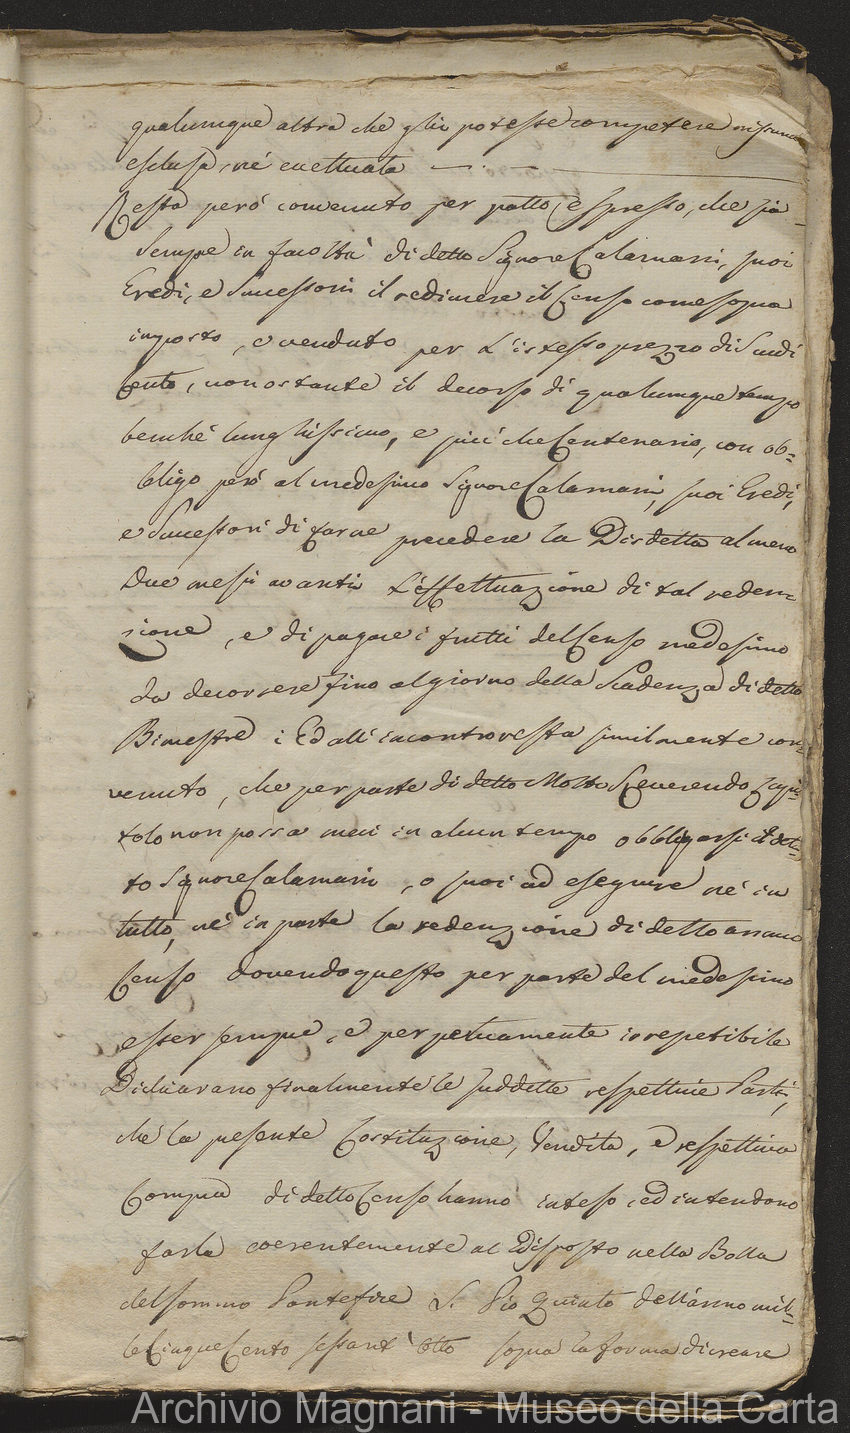 qualunque altra che gli potesse competere nissuna
esclusa, né eccettuata
Resta però convenuto per patto espresso, che sia
sempre in facoltà di detto Signore Calamari, suoi
Eredi, e Successori il redimere il Censo come sopra
imposto, e venduto per l'istesso prezzo di Scudi
Cento, nonostante il decorso di qualunque tempo
benché lunghissimo, e più che Centenario, con ob=
bligo però al medesimo Signore Calamari, suoi Eredi,
e Successori di farne precedere la Disdetta almeno
Due mesi avanti l'effettuazione di tal reden=
zione, e di pagare i frutti del Censo medesimo
da decorrere fino al giorno della Scadenza di detto
Bimestre; Ed all'incontro resta similmente con=
venuto, che per parte di detto Molto Reverendo Capi=
tolo non possa mai in alcun tempo obbligarsi il det=
to Signore Calamari, o suoi ad eseguire né in
tutto, né in parte la redenzione di detto annuo
Censo dovendo questo per parte del medesimo
esser sempre, e perpetuamente irrepetibile
Dichiarano finalmente le suddette respettive Parti,
che la presente Costituzione, Vendita, e respettiva
Compra di detto Censo hanno inteso, ed intendono
farla coerentemente al Disposto nella Bolla
del Sommo Pontefice S. Pio Quinto dell'anno mil=
le Cinque Cento sessant'Otto sopra la forma di creare
Archivio Magnani - Museo della Carta